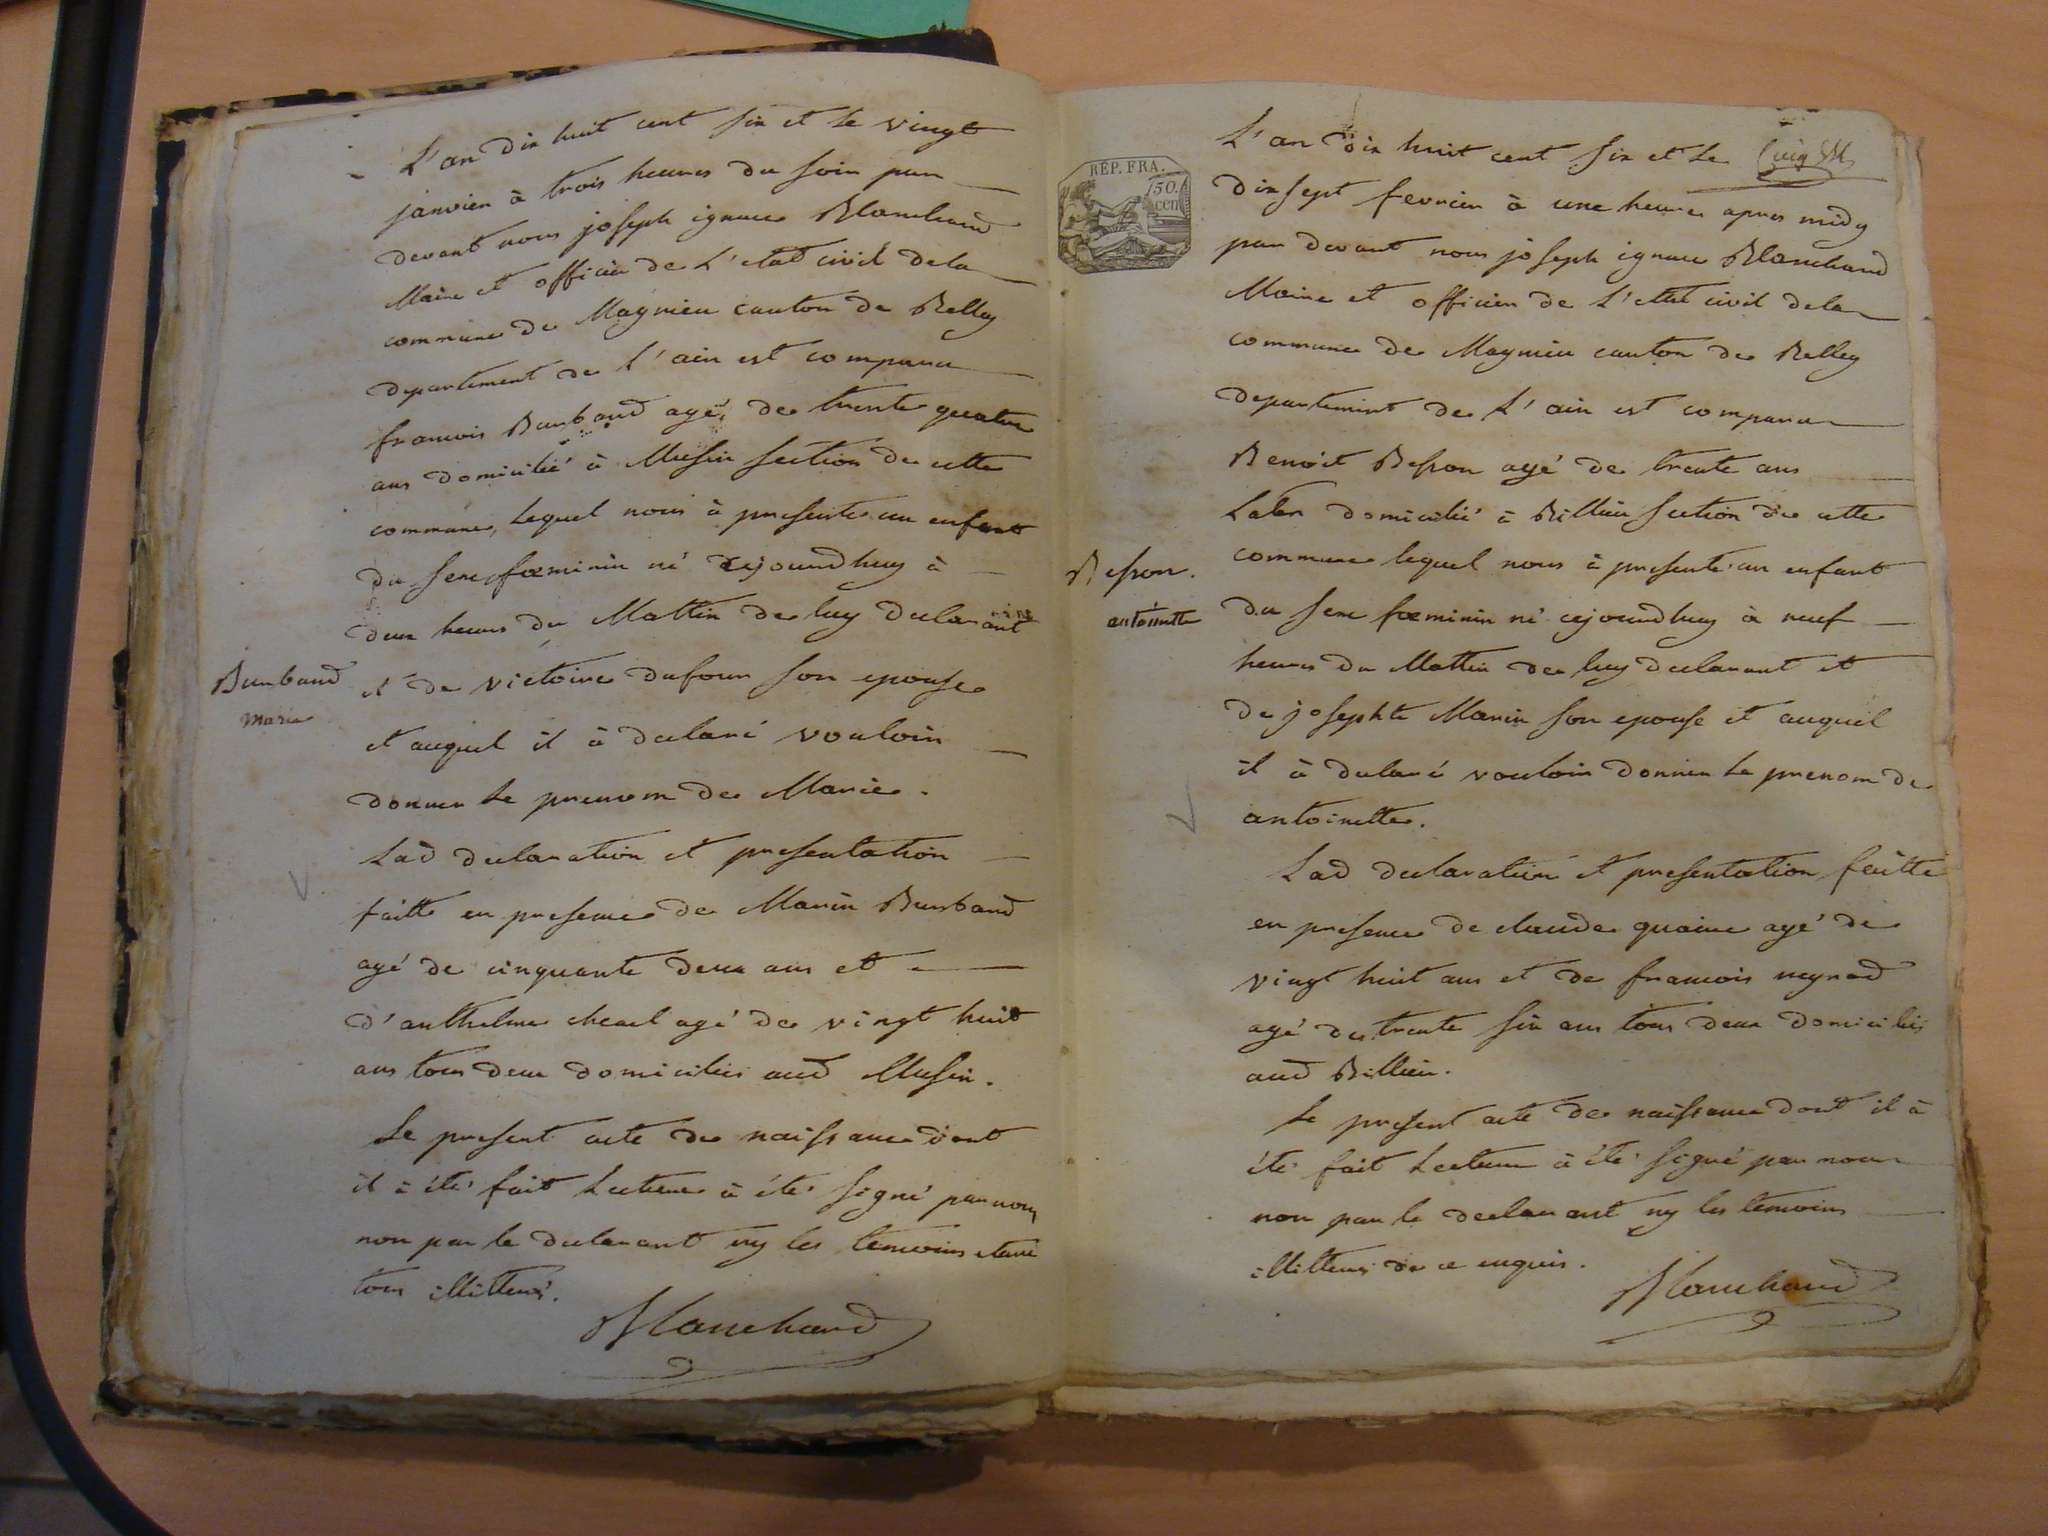 L'an dix huit cent six et le vingt
janvier à trois heures du soir par
devant nous joseph ignace Blanchard
Maire et officier de L'etat civil dela
commune de Magnieu canton de Belley
departement de l'ain est comparu
francois Burbaud agé de trente quatre
ans domicilié à Musin section de cette
commune, lequel nous à presente un enfant
du sexe fœminin né cejourdhuy à
deux heures du Mattin de luy declarant
Burbaud
Marie
et de victoire dufour son epouse
et auquel il à declaré vouloir
donner le prenom de Marie.
Lad declaration et presentation
faitte en presence de Marin Burbaud
agé de cinquante deux ans et
d'anthelme agé de vingt huit
ans tous deux domiciliés aud Musin.
Le present acte de naissance dont
il à été fait Lecture à été signé par nous
non par le declarant ny les temoins etant
tous illitterés.
Blanchard
REP. FRA.
50.
cen
L'an dix huit cent six et le
dix sept fevrier à une heure apres midy
par devant nous joseph ignace Blanchard
Maire et officier de L'etat civil dela
commune de Magnieu canton de Belley
departement de L'ain est comparu
Benoit Besson agé de trente ans
Labr domicilié à Billieu section de cette
Besson.
antoinette
commune lequel nous à presente un enfant
du sexe fœminin né cejourdhuy à neuf
heures du Mattin de luy declarant et
de josephte Marin son epouse et auquel
il à declaré vouloir donner le prenom de
antoinette.
Lad declaration et presentation faitte
en presence de claude agé de
vingt huit ans et de francois neyrod
agé de trente six ans tous deux domiciliés
aud Billieu.
Le present acte de naissance dont il à
été fait Lecture à été signé par nous
non par le declarant ny les temoins
illitterés de ce enquis.
Blanchard